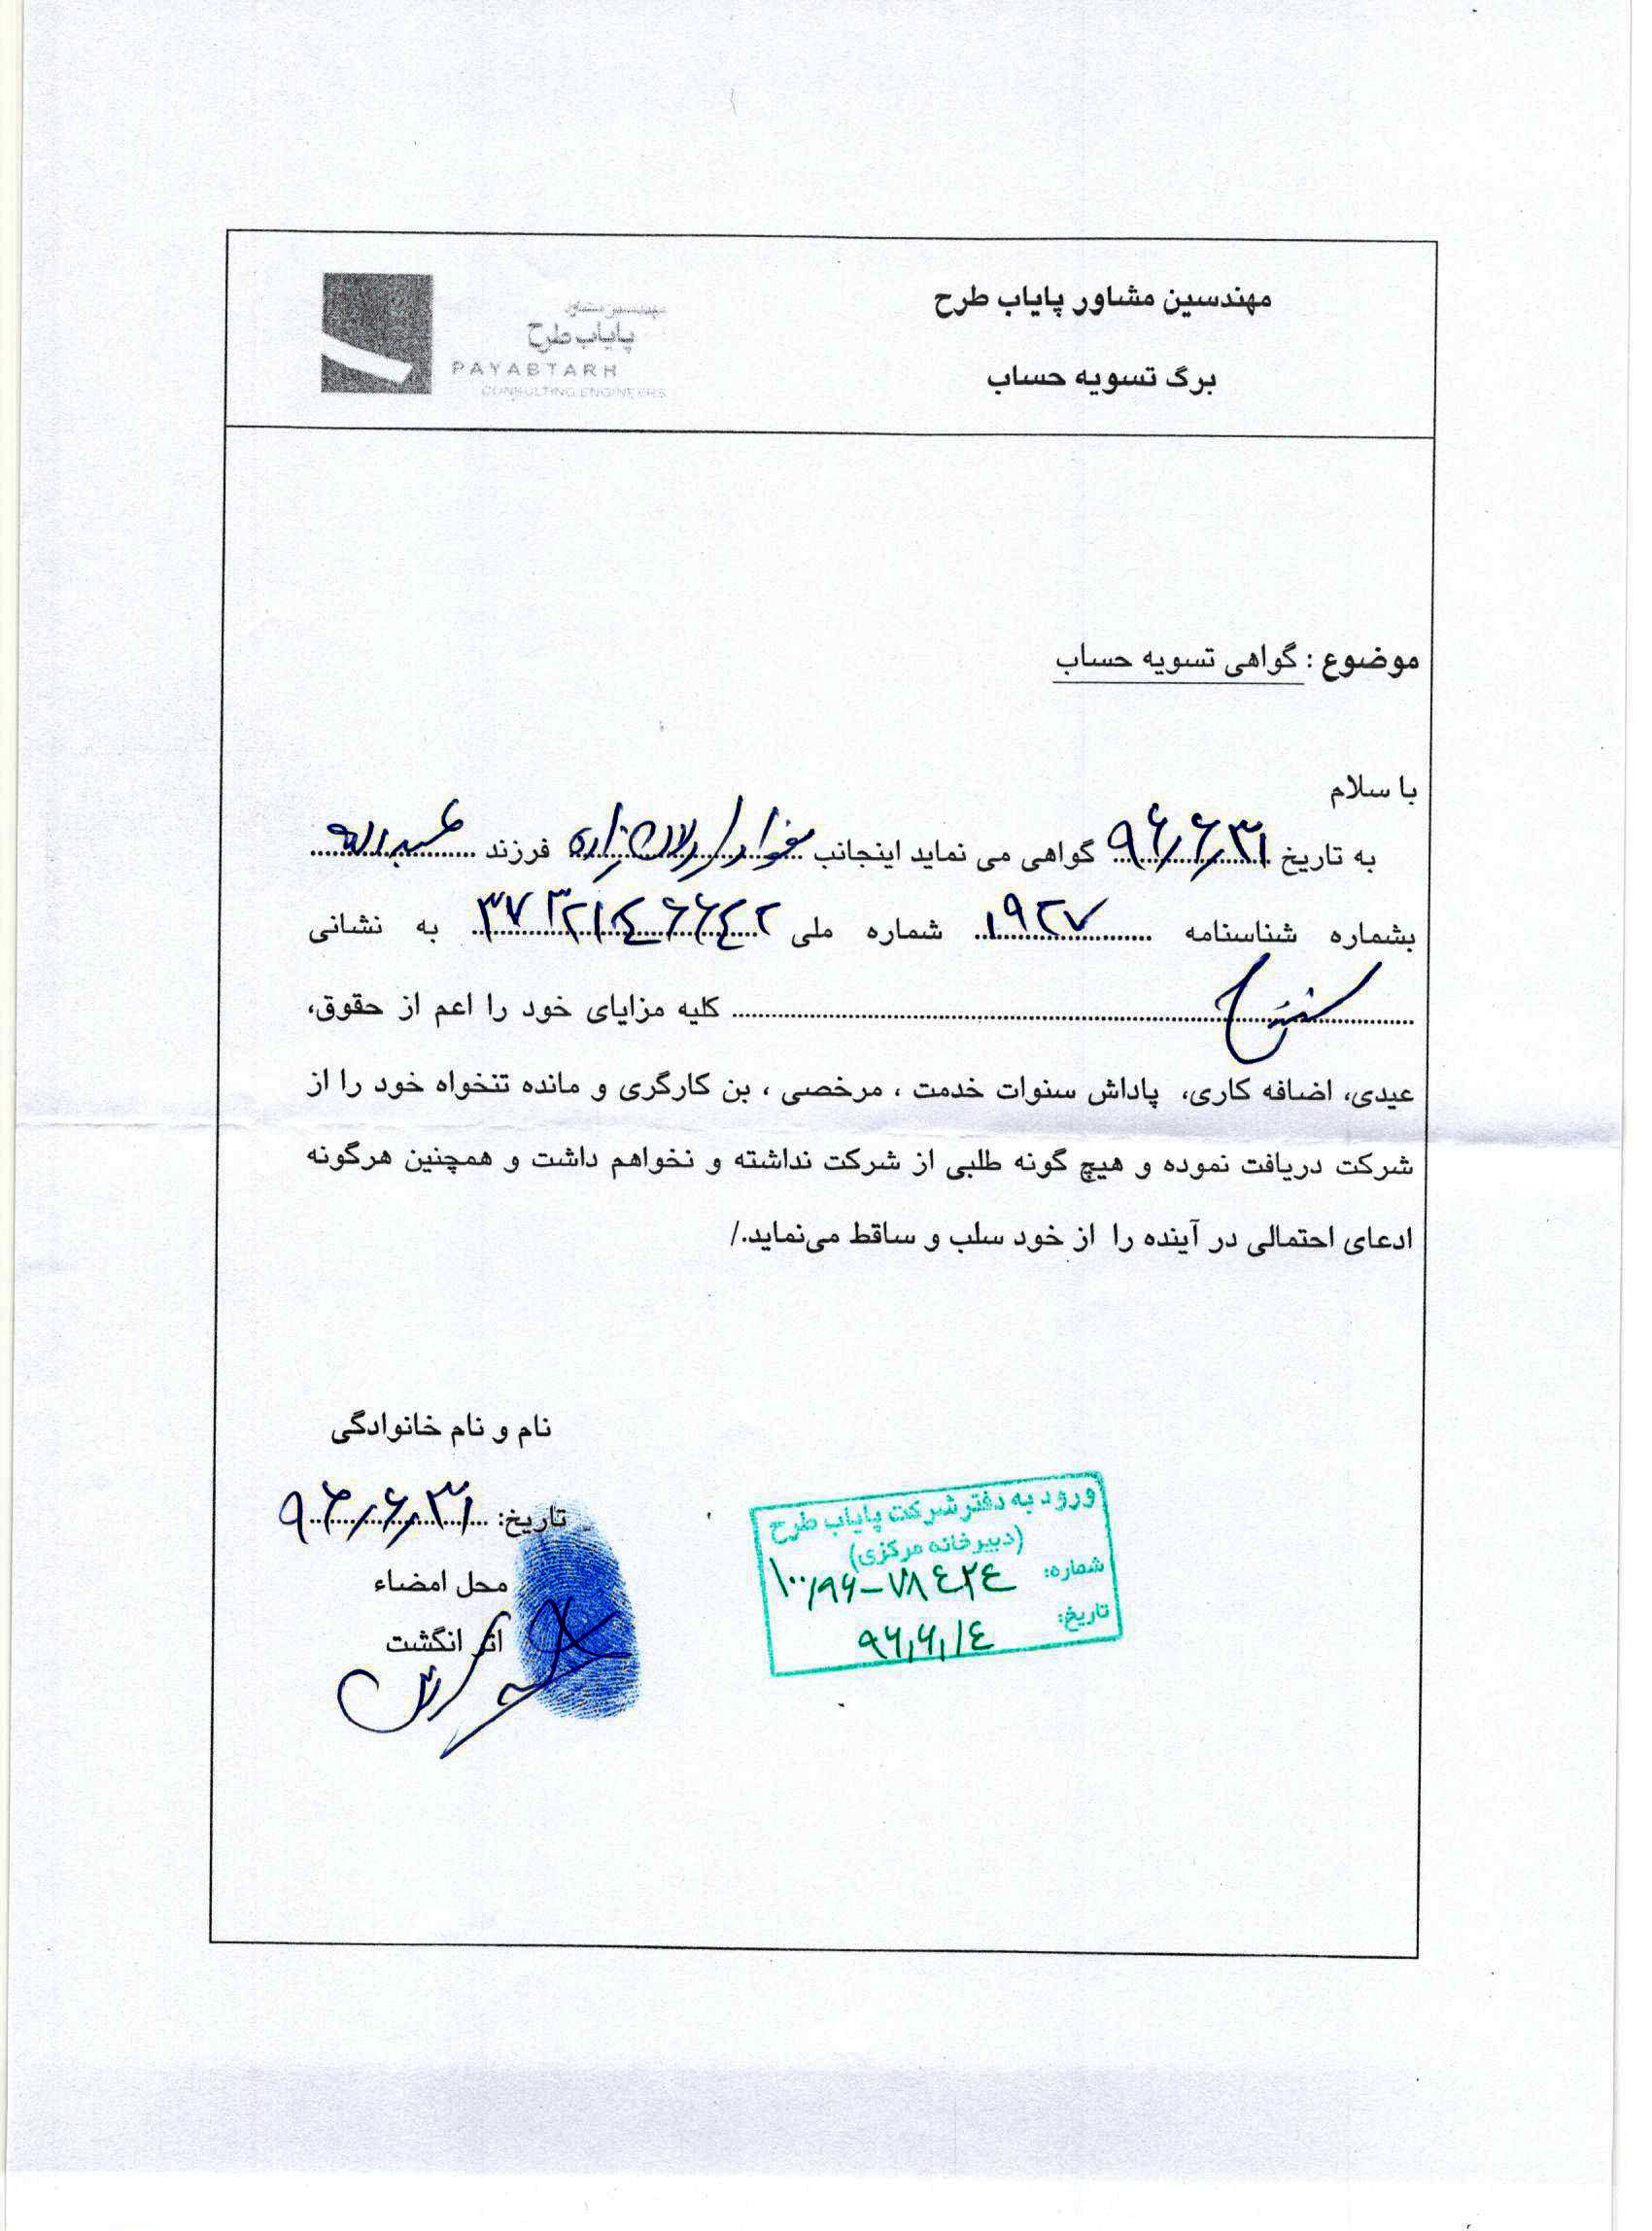 مهندسین مشاور پایاب طرح
برگ تسویه حساب
مهندسین مشاور
پایاب طرح
PAYABTARH
CONSULTING ENGINEERS
موضوع : گواهی تسویه حساب
با سلام
به تاریخ ۹۶/۶/۳۱ گواهی می نماید اینجانب فرزند عبدالله
بشماره شناسنامه ۱۹۲۷ شماره ملی به نشانی
سنندج کلیه مزایای خود را اعم از حقوق،
عیدی، اضافه کاری، پاداش سنوات خدمت ، مرخصی ، بن کارگری و مانده تنخواه خود را از
شرکت دریافت نموده و هیچ گونه طلبی از شرکت نداشته و نخواهم داشت و همچنین هرگونه
ادعای احتمالی در آینده را از خود سلب و ساقط می‌نماید./
نام و نام خانوادگی
تاریخ: ۹۶/۶/۳۱
محل امضاء
اثر انگشت
ورود به دفتر شرکت پایاب طرح
(دبیرخانه مرکزی)
شماره: ۱۰۰/۹۶-۷۸۴۲۴
تاریخ: ۹۶/۶/۱۴